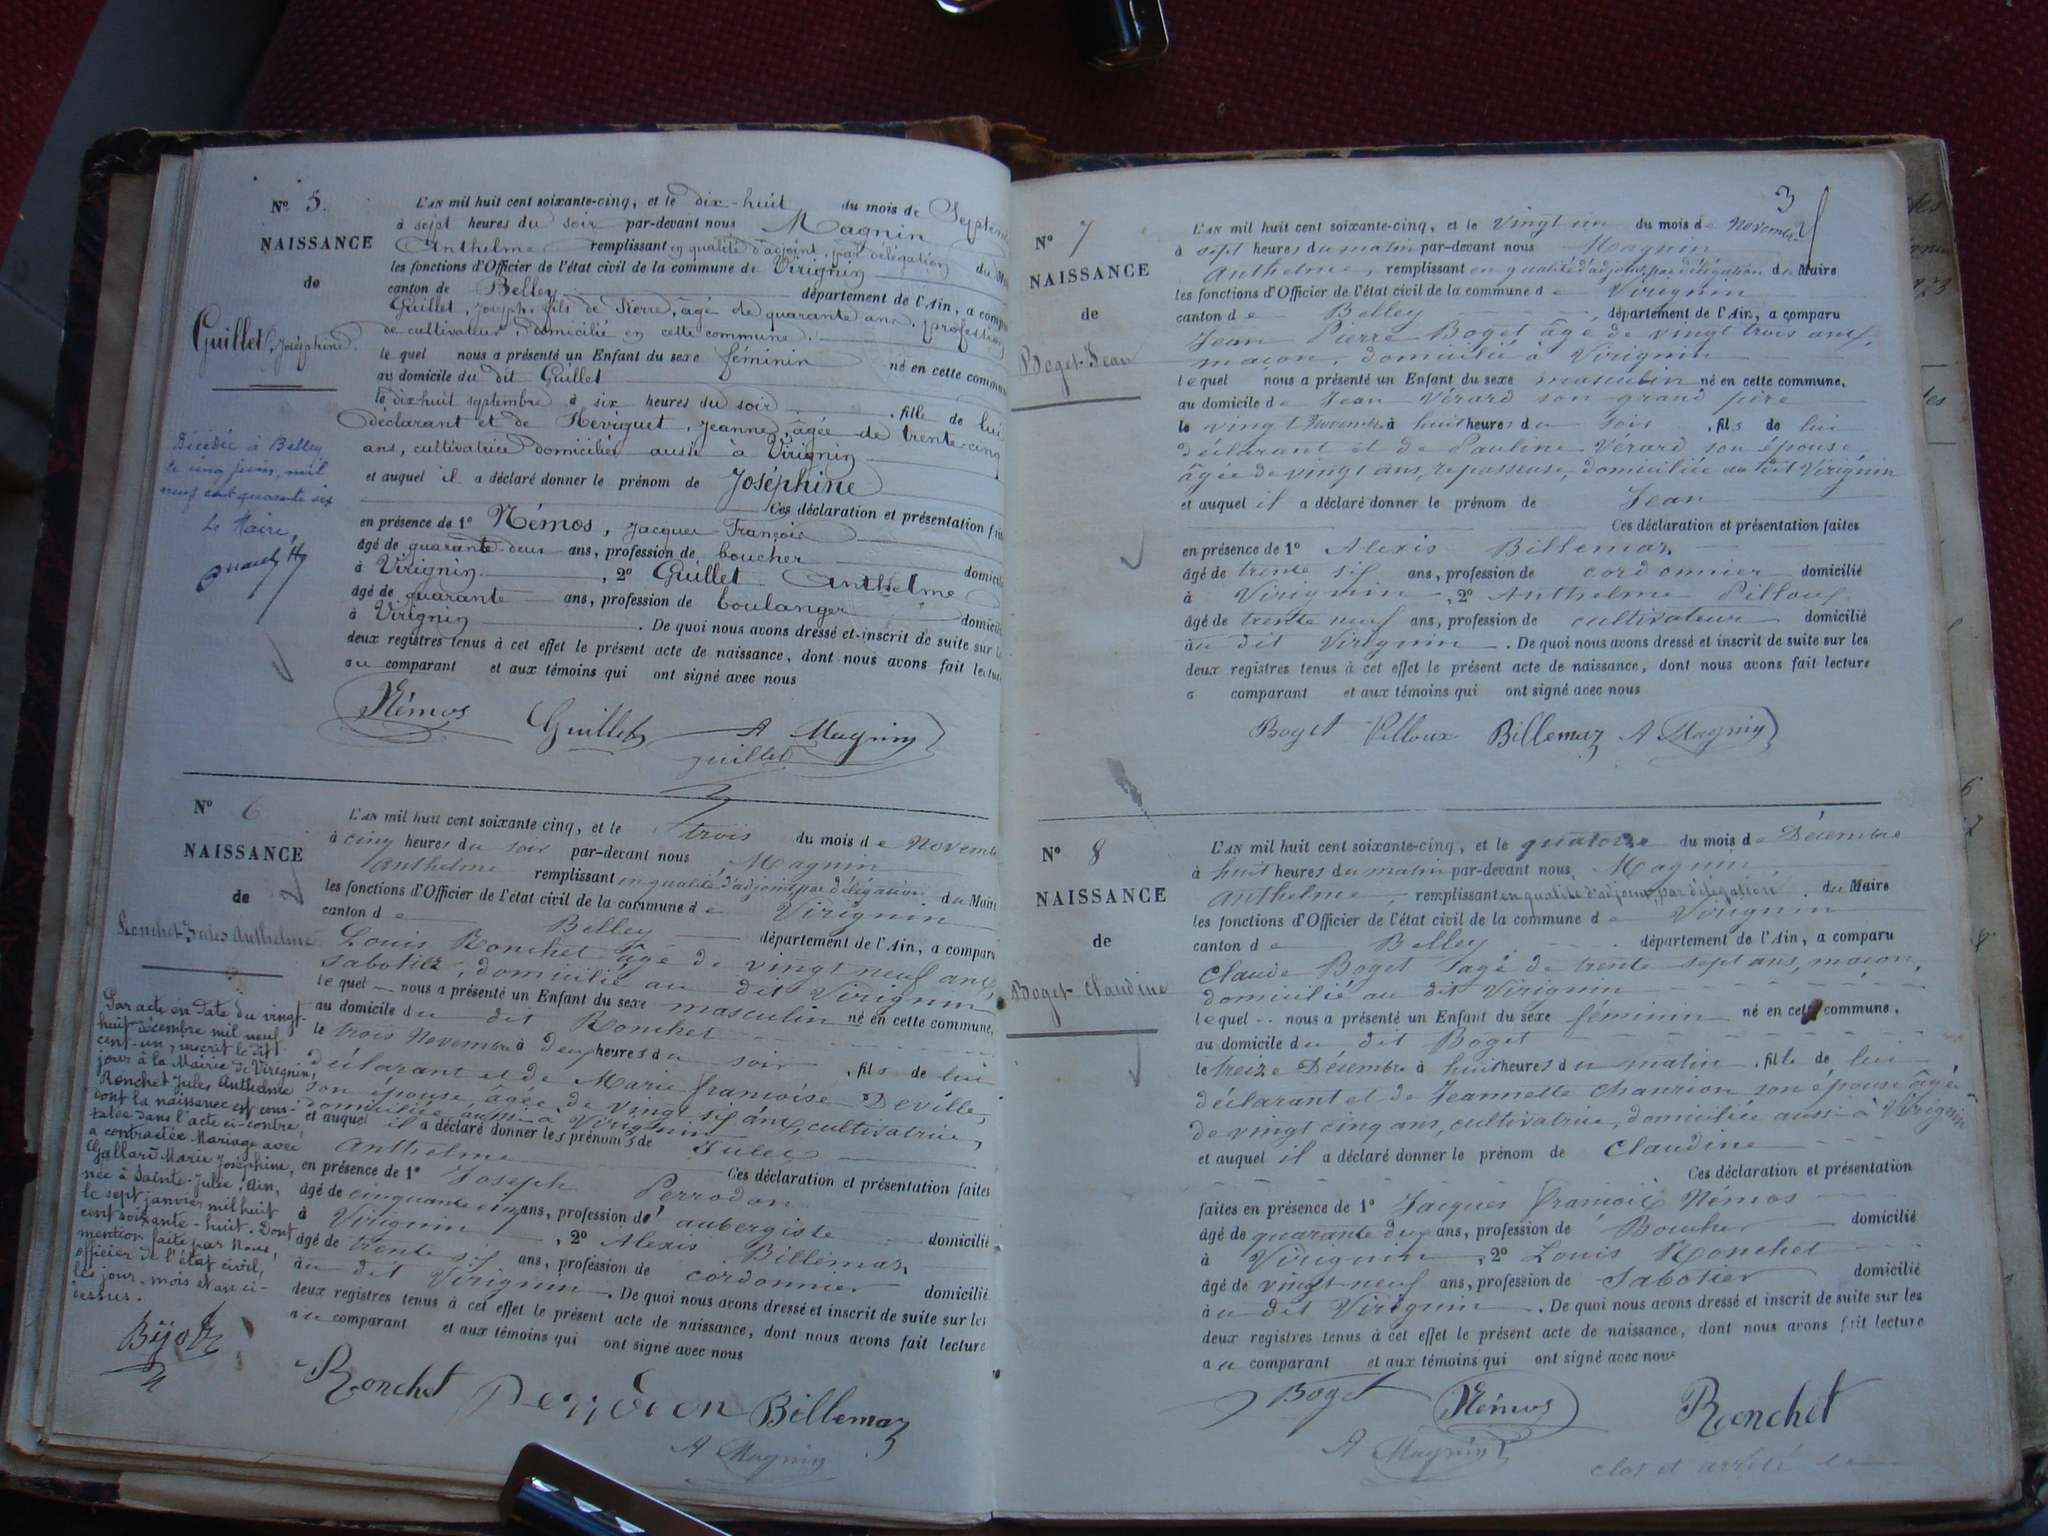 Nº 5.
NAISSANCE
de
Guillet, Joséphine.
Décédée à Belley
le cinq juin mil
neuf cent quarante six
Le Maire,
L'AN mil huit cent soixante-cinq, et le dix-huit du mois de Septem
à sept heures du soir par-devant nous Magnin
Anthelme remplissant en qualité d'adjoint par délégation du M
les fonctions d'Officier de l'état civil de la commune de Virignin
canton de Belley département de l'Ain, a compa
Guillet, Joseph, fils de Pierre, âgé de quarante ans, profession
de cultivateur, domicilié en cette commune.
le quel nous a présenté un Enfant du sexe féminin né en cette commu
au domicile du dit Guillet
le dix-huit septembre à six heures du soir, fille de lui
déclarant et de Heviguet, Jeanne, âgée de trente-cinq
ans, cultivatrice domiciliée aussi à Virignin
et auquel il a déclaré donner le prénom de Joséphine
Ces déclaration et présentation fai
en présence de 1º Némos, Jacques François
âgé de quarante-deux ans, profession de boucher domicili
à Virignin, 2º Guillet Anthelme
âgé de quarante ans, profession de boulanger domicili
à Virignin. De quoi nous avons dressé et inscrit de suite sur l
deux registres tenus à cet effet le présent acte de naissance, dont nous avons fait lectur
au comparant et aux témoins qui ont signé avec nous
Némos Guillet A Magnin
guillet
Nº 6
NAISSANCE
de
Ronchet-Jules Anthelme
Par acte en date du vingt-
huit décembre mil neuf
cent-un, inscrit le dit
jour à la Mairie de Virignin,
Ronchet Jules Anthelme
dont la naissance est cons-
tatée dans l'acte ci-contre,
a contracté Mariage avec
Gallard Marie Joséphine,
née à Sainte-Julie, Ain,
le sept janvier mil huit
cent soixante-huit. Dont
mention faite par Nous,
officier de l'état civil,
les jour, mois et an ci-
dessus.
L'AN mil huit cent soixante-cinq, et le trois du mois de Novemb
à cinq heures du soir par-devant nous Magnin
Anthelme remplissant en qualité d'adjoint par délégation du Maire
les fonctions d'Officier de l'état civil de la commune de Virignin
canton de Belley département de l'Ain, a comparu
Louis Ronchet âgé de vingt neuf ans,
sabotier, domicilié au dit Virignin,
le quel nous a présenté un Enfant du sexe masculin né en cette commune,
au domicile du dit Ronchet
le trois Novembre à deux heures du soir, fils de lui
déclarant et de Marie françoise Deville,
son épouse âgée de vingt six ans, cultivatrice,
domiciliée aussi à Virignin
et auquel il a déclaré donner les prénoms de Jules
Anthelme
Ces déclaration et présentation faites
en présence de 1º Joseph Perrodon
âgé de cinquante cinq ans, profession de aubergiste domicilié
à Virignin, 2º Alexis Billemaz
âgé de trente six ans, profession de cordonnier domicilié
au dit Virignin. De quoi nous avons dressé et inscrit de suite sur les
deux registres tenus à cet effet le présent acte de naissance, dont nous avons fait lecture
au comparant et aux témoins qui ont signé avec nous
Ronchet Perrodon Billemaz
A Magnin
3
Nº 7
NAISSANCE
de
Boget-Jean
L'AN mil huit cent soixante-cinq, et le vingt un du mois de Novembre
à sept heures du matin par-devant nous Magnin
Anthelme, remplissant en qualité d'adjoint par délégation du Maire
les fonctions d'Officier de l'état civil de la commune de Virignin
canton de Belley département de l'Ain, a comparu
Jean Pierre Boget âgé de vingt trois ans,
maçon, domicilié à Virignin
lequel nous a présenté un Enfant du sexe masculin né en cette commune,
au domicile de Jean Vérard son grand père
le vingt Novembre à huit heures du soir, fils de lui
déclarant et de Pauline Vérard son épouse
âgée de vingt ans, repasseuse, domiciliée au dit Virignin
et auquel il a déclaré donner le prénom de Jean
Ces déclaration et présentation faites
en présence de 1º Alexis Billemaz
âgé de trente six ans, profession de cordonnier domicilié
à Virignin, 2º Anthelme Pilloux
âgé de trente neuf ans, profession de cultivateur domicilié
au dit Virignin. De quoi nous avons dressé et inscrit de suite sur les
deux registres tenus à cet effet le présent acte de naissance, dont nous avons fait lecture
a comparant et aux témoins qui ont signé avec nous
Boget Pilloux Billemaz A Magnin
Nº 8
NAISSANCE
de
Boget-Claudine
L'AN mil huit cent soixante-cinq, et le quatorze du mois de Décembre
à huit heures du matin par-devant nous, Magnin
Anthelme, remplissant en qualité d'adjoint par délégation du Maire
les fonctions d'Officier de l'état civil de la commune de Virignin
canton de Belley département de l'Ain, a comparu
Claude Boget âgé de trente sept ans, maçon,
domicilié au dit Virignin
lequel nous a présenté un Enfant du sexe féminin né en cette commune,
au domicile du dit Boget
le treize Décembre à huit heures du matin, fille de lui
déclarant et de Jeannette Chanrion son épouse âgée
de vingt cinq ans, cultivatrice, domiciliée aussi à Virignin
et auquel il a déclaré donner le prénom de Claudine
Ces déclaration et présentation
faites en présence de 1º Jacques françois Némos
âgé de quarante deux ans, profession de Boucher domicilié
à Virignin, 2º Louis Ronchet
âgé de vingt neuf ans, profession de Sabotier domicilié
au dit Virignin. De quoi nous avons dressé et inscrit de suite sur les
deux registres tenus à cet effet le présent acte de naissance, dont nous avons fait lecture
au comparant et aux témoins qui ont signé avec nous
Boget Némos Ronchet
A Magnin
clos et arrêté le